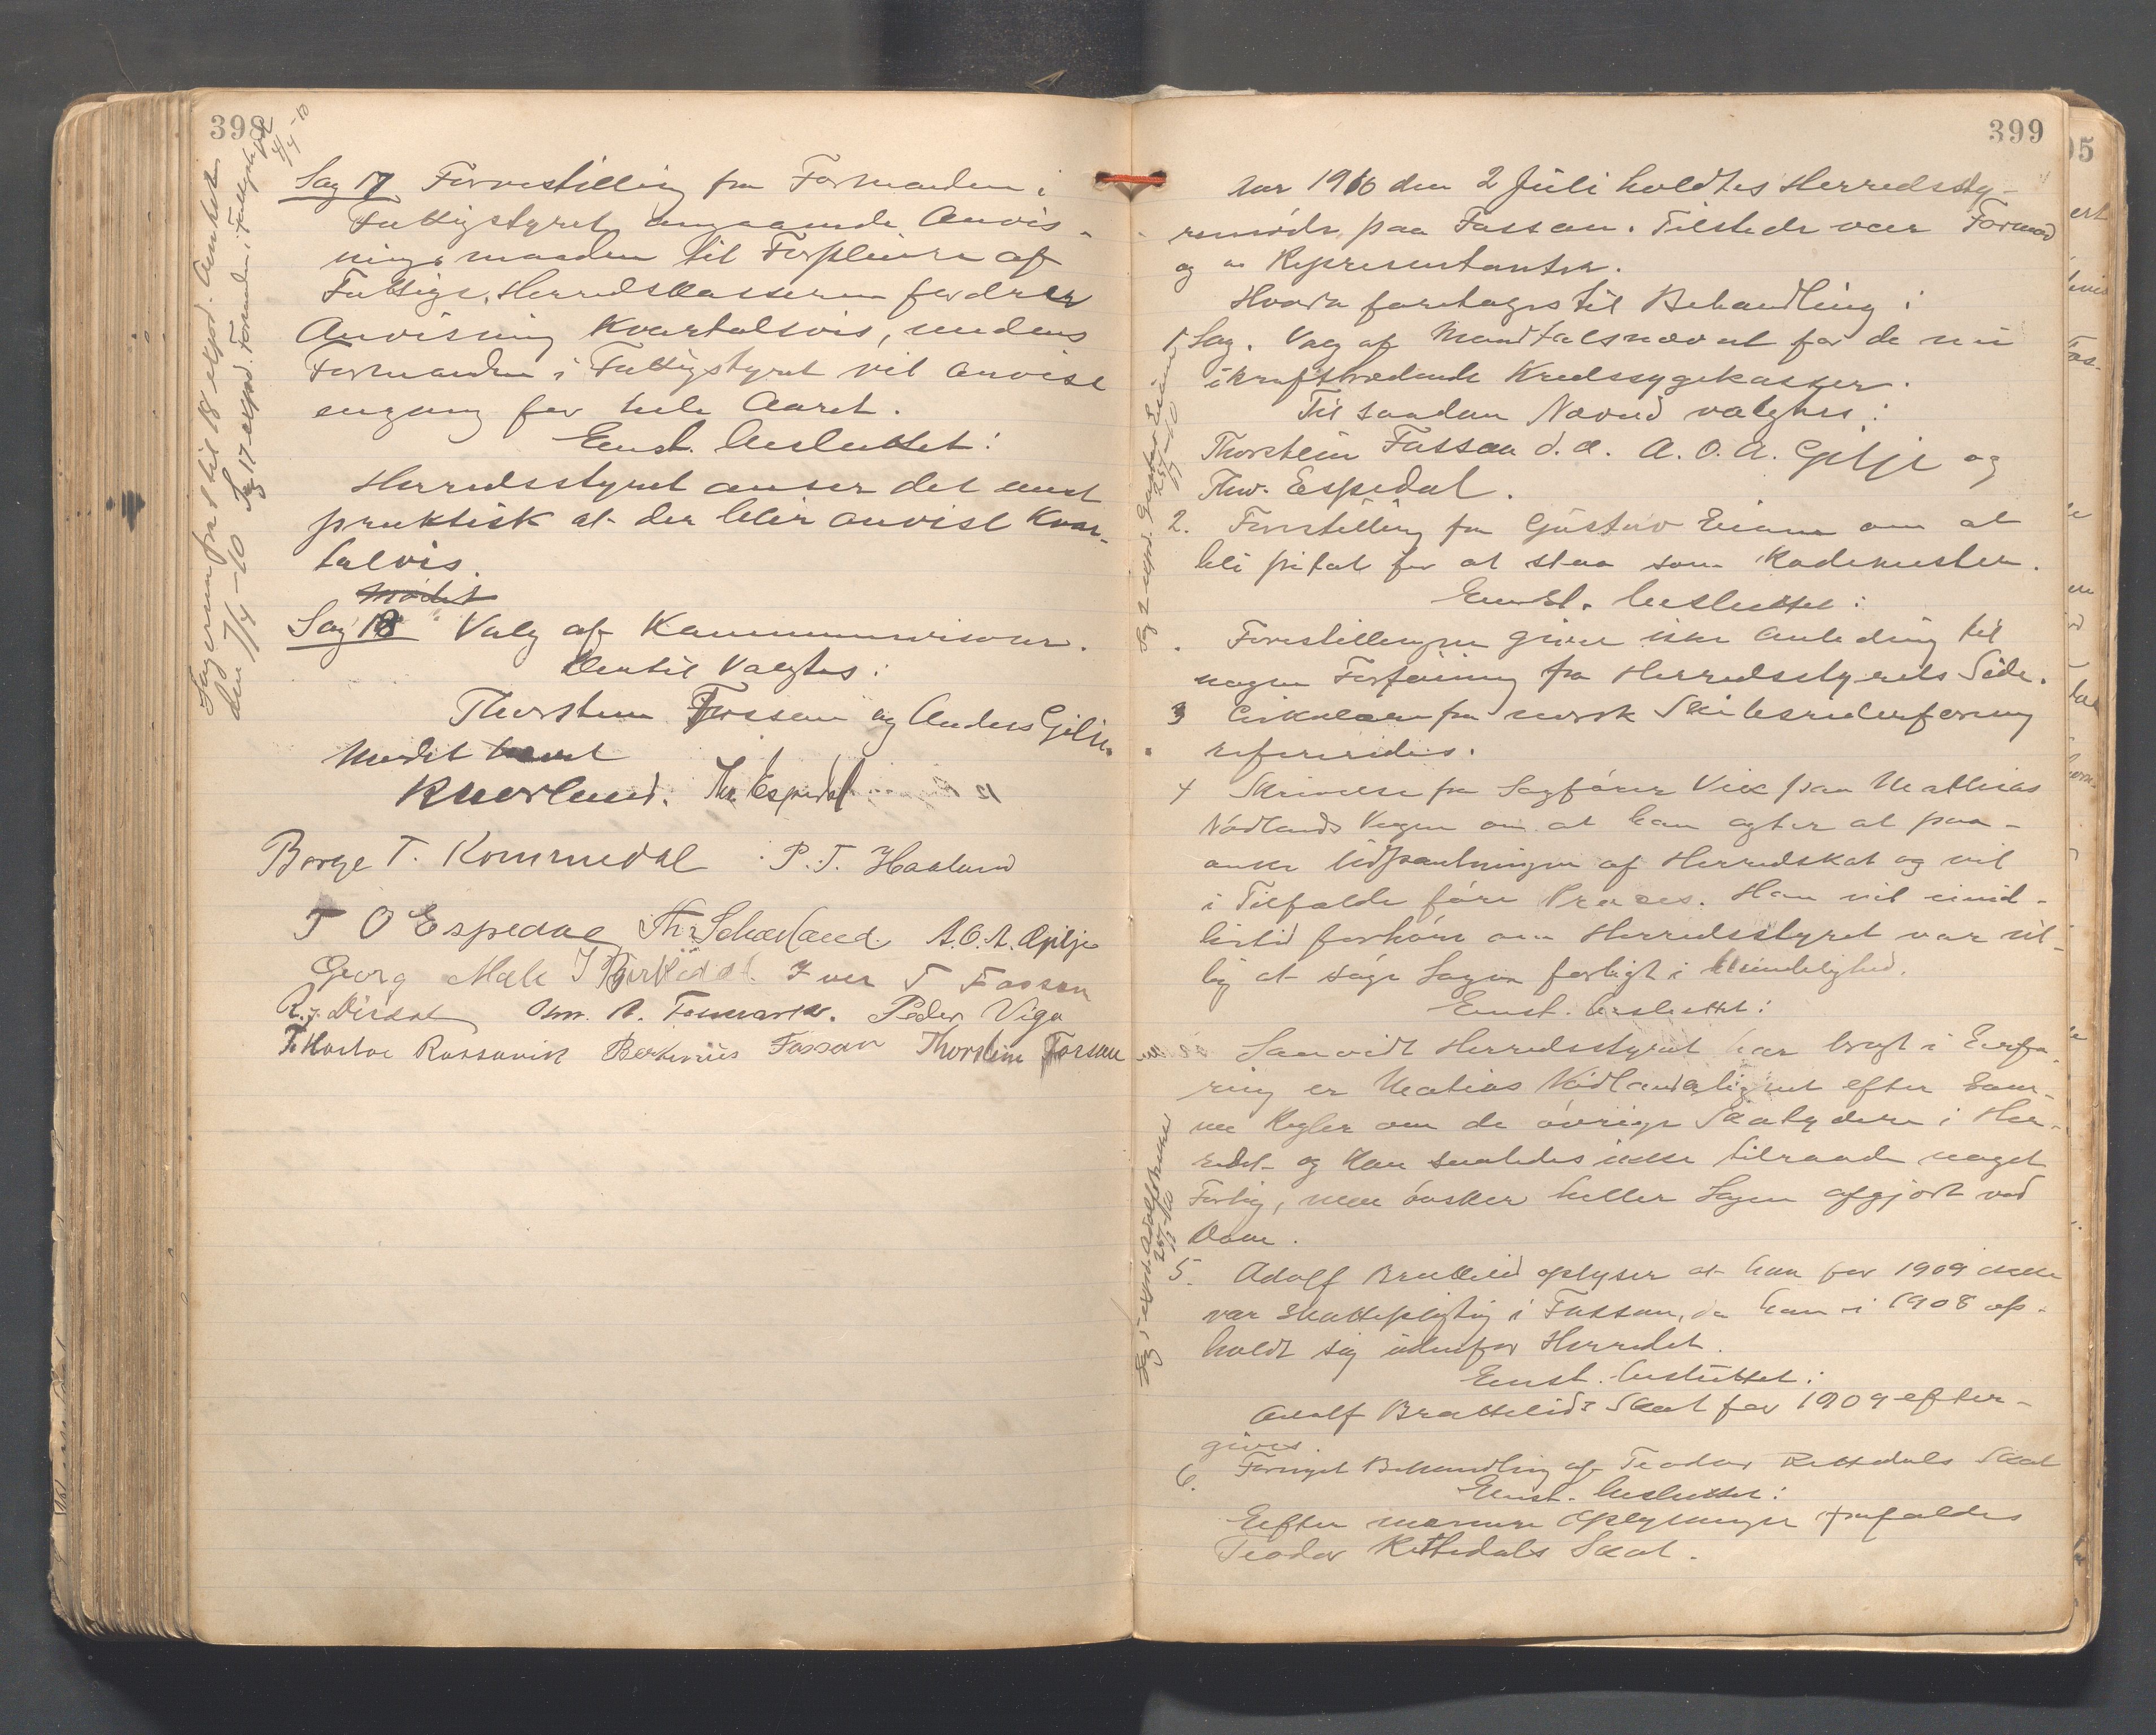 398
Sagerne fra 1 til 18 expd. Amtet
den 7/4 -10 Sag 17 expd. Formanden i Fattigstyret
4/4 -10
Sag 17 Forestilling fra Formanden i
Fattigstyret angaaende Anvis-
ningsmaaden til Forpleiere af
Fattige. Herredskassereren fordrer
Anvisning Kvartalsvis, medens
Formanden i Fattigstyret vil anvise
engang for hele Aaret.
Enst. besluttet:
Herredsstyret anser det mest
praktisk at der blir anvist Kvar-
talvis.
Mødet
Sag 18 Valg af Kommunerevisorer.
Dertil valgtes:
Thorstein Fossan og Anders Gilje.
Mødet hævet
K Norland. Th. Espedal
Borge T. Kommedal P. T. Haaland
T O Espedal Th. Schavland. A. O. A. Gilje
Georg Mæle Iver T Fossan
R. J. Dirdal Om. A. Tennarvk. Peder Viga
T. Hortoe Rossavik Berthinius Fossan Thorstein Fossan
399
Aar 1910 den 2 Juli holdtes Herredssty-
remøde paa Fossan. Tilstede var Formand
og Representanter.
Hvorda foretoges til Behandling:
1 Sag. Valg af Mandtalsnævnd for de nu
ikrafttrædende Kredssygekasser.
Til saadan Nævnd valgtes:
Thorstein Fossan d. æ. A. O. A. Gilje og
Thv. Espedal.
Sag 2 expd. Gustav Eiane 25/7 -10
2. Forestilling fra Gustav Eiane om at
bli fritat for at staa som Rodemester.
Enst. besluttet:
Forestillingen giver ikke Anledning til
nogen Forføining fra Herredsstyrets Side.
3 Cirkulære fra norsk Skibsrederforening
refereredes.
4 Skrivelse fra Sagfører Vik paa Mathias
Nødlands Vegne om at han agter at paa-
anke Udpantningen af Herredskat og vil
i Tilfælde føre Proces. Han vil imid-
lertid forhøre om Herredsstyret var vil-
lig at søge Sagen forligt i Mindelighed.
Enst. besluttet:
Saavidt Herredsstyret har bragt i Erfa-
ring er Matias Nødland lignet efter sam-
me Regler som de øvrige Skatydere i Her-
redet og kan saaledes ikke tilraade noget
Forlig, men ønsker heller Sagen afgjort ved
Dom.
Sag 5 expd. Adolf Bratteli 25/7 -10
5. Adolf Brattelid oplyser at han for 1909 ikke
var skattepligtig i Fossan, da han i 1908 op-
holdt sig udenfor Herredet.
Enst. besluttet:
Adolf Brattelids Skat for 1909 efter-
gives.
6. Fornyet Behandling af Teodor Rettedals Skat
Enst. besluttet:
Efter nærmere Oplysninger frafaldes
Teodor Rettedals Skat.